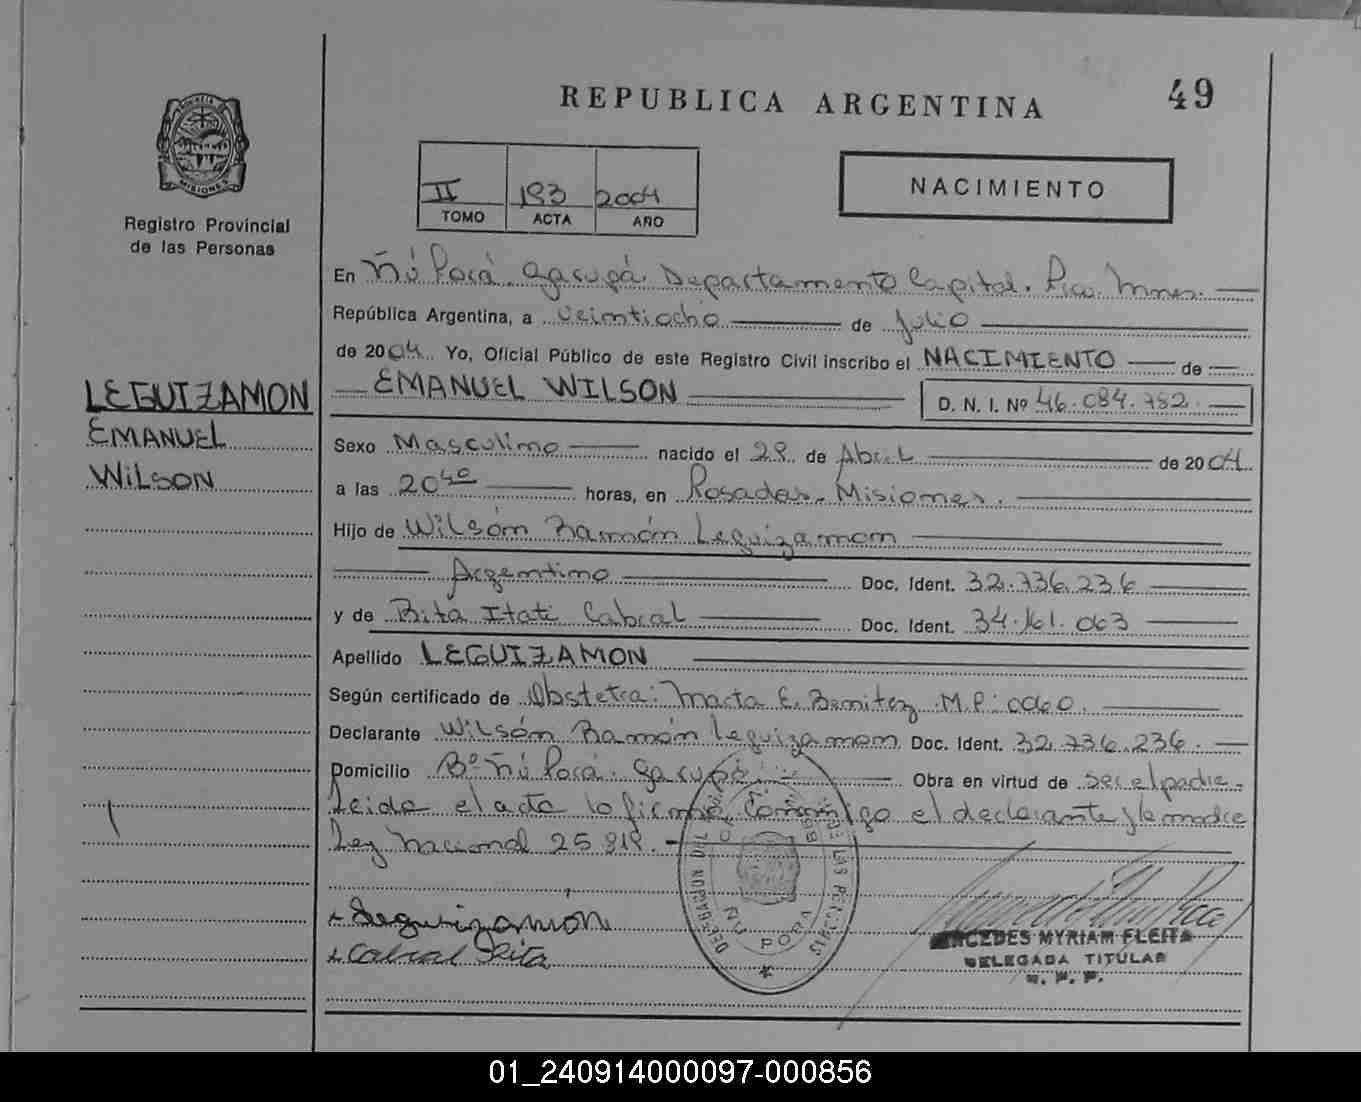 REPUBLICA ARGENTINA
49
Registro Provincial
de las Personas
II 193 2004
TOMO ACTA AÑO
NACIMIENTO
En Ñú Porá. Garupá. Departamento Capital. Pcia. Mnes.
República Argentina, a veintiocho de julio
de 2004. Yo, Oficial Público de este Registro Civil inscribo el NACIMIENTO de
EMANUEL WILSON D. N. I. Nº 46.084.782.
LEGUIZAMON
EMANUEL
WILSON
Sexo Masculino nacido el 28 de Abril de 2004
a las 20 40 horas, en Posadas. Misiones.
Hijo de Wilsón Ramón Leguizamon
Argentino Doc. Ident. 32.736.236
y de Rita Itatí Cabral Doc. Ident. 34.161.063
Apellido LEGUIZAMON
Según certificado de Obstetra: Marta E. Benitez M.P: 0060.
Declarante Wilsón Ramón Leguizamon Doc. Ident. 32.736.236.
Domicilio Bº Ñú Porá. Garupá Obra en virtud de ser el padre.
Leida el acta la firma conmigo el declarante y la madre
Ley Nacional 25.818.-
Leguizamón
Cabral Rita
ÑU PORA
LAS PERSONAS
MERCEDES MYRIAM FLEITA
DELEGADA TITULAR
R. P. P.
01_240914000097-000856